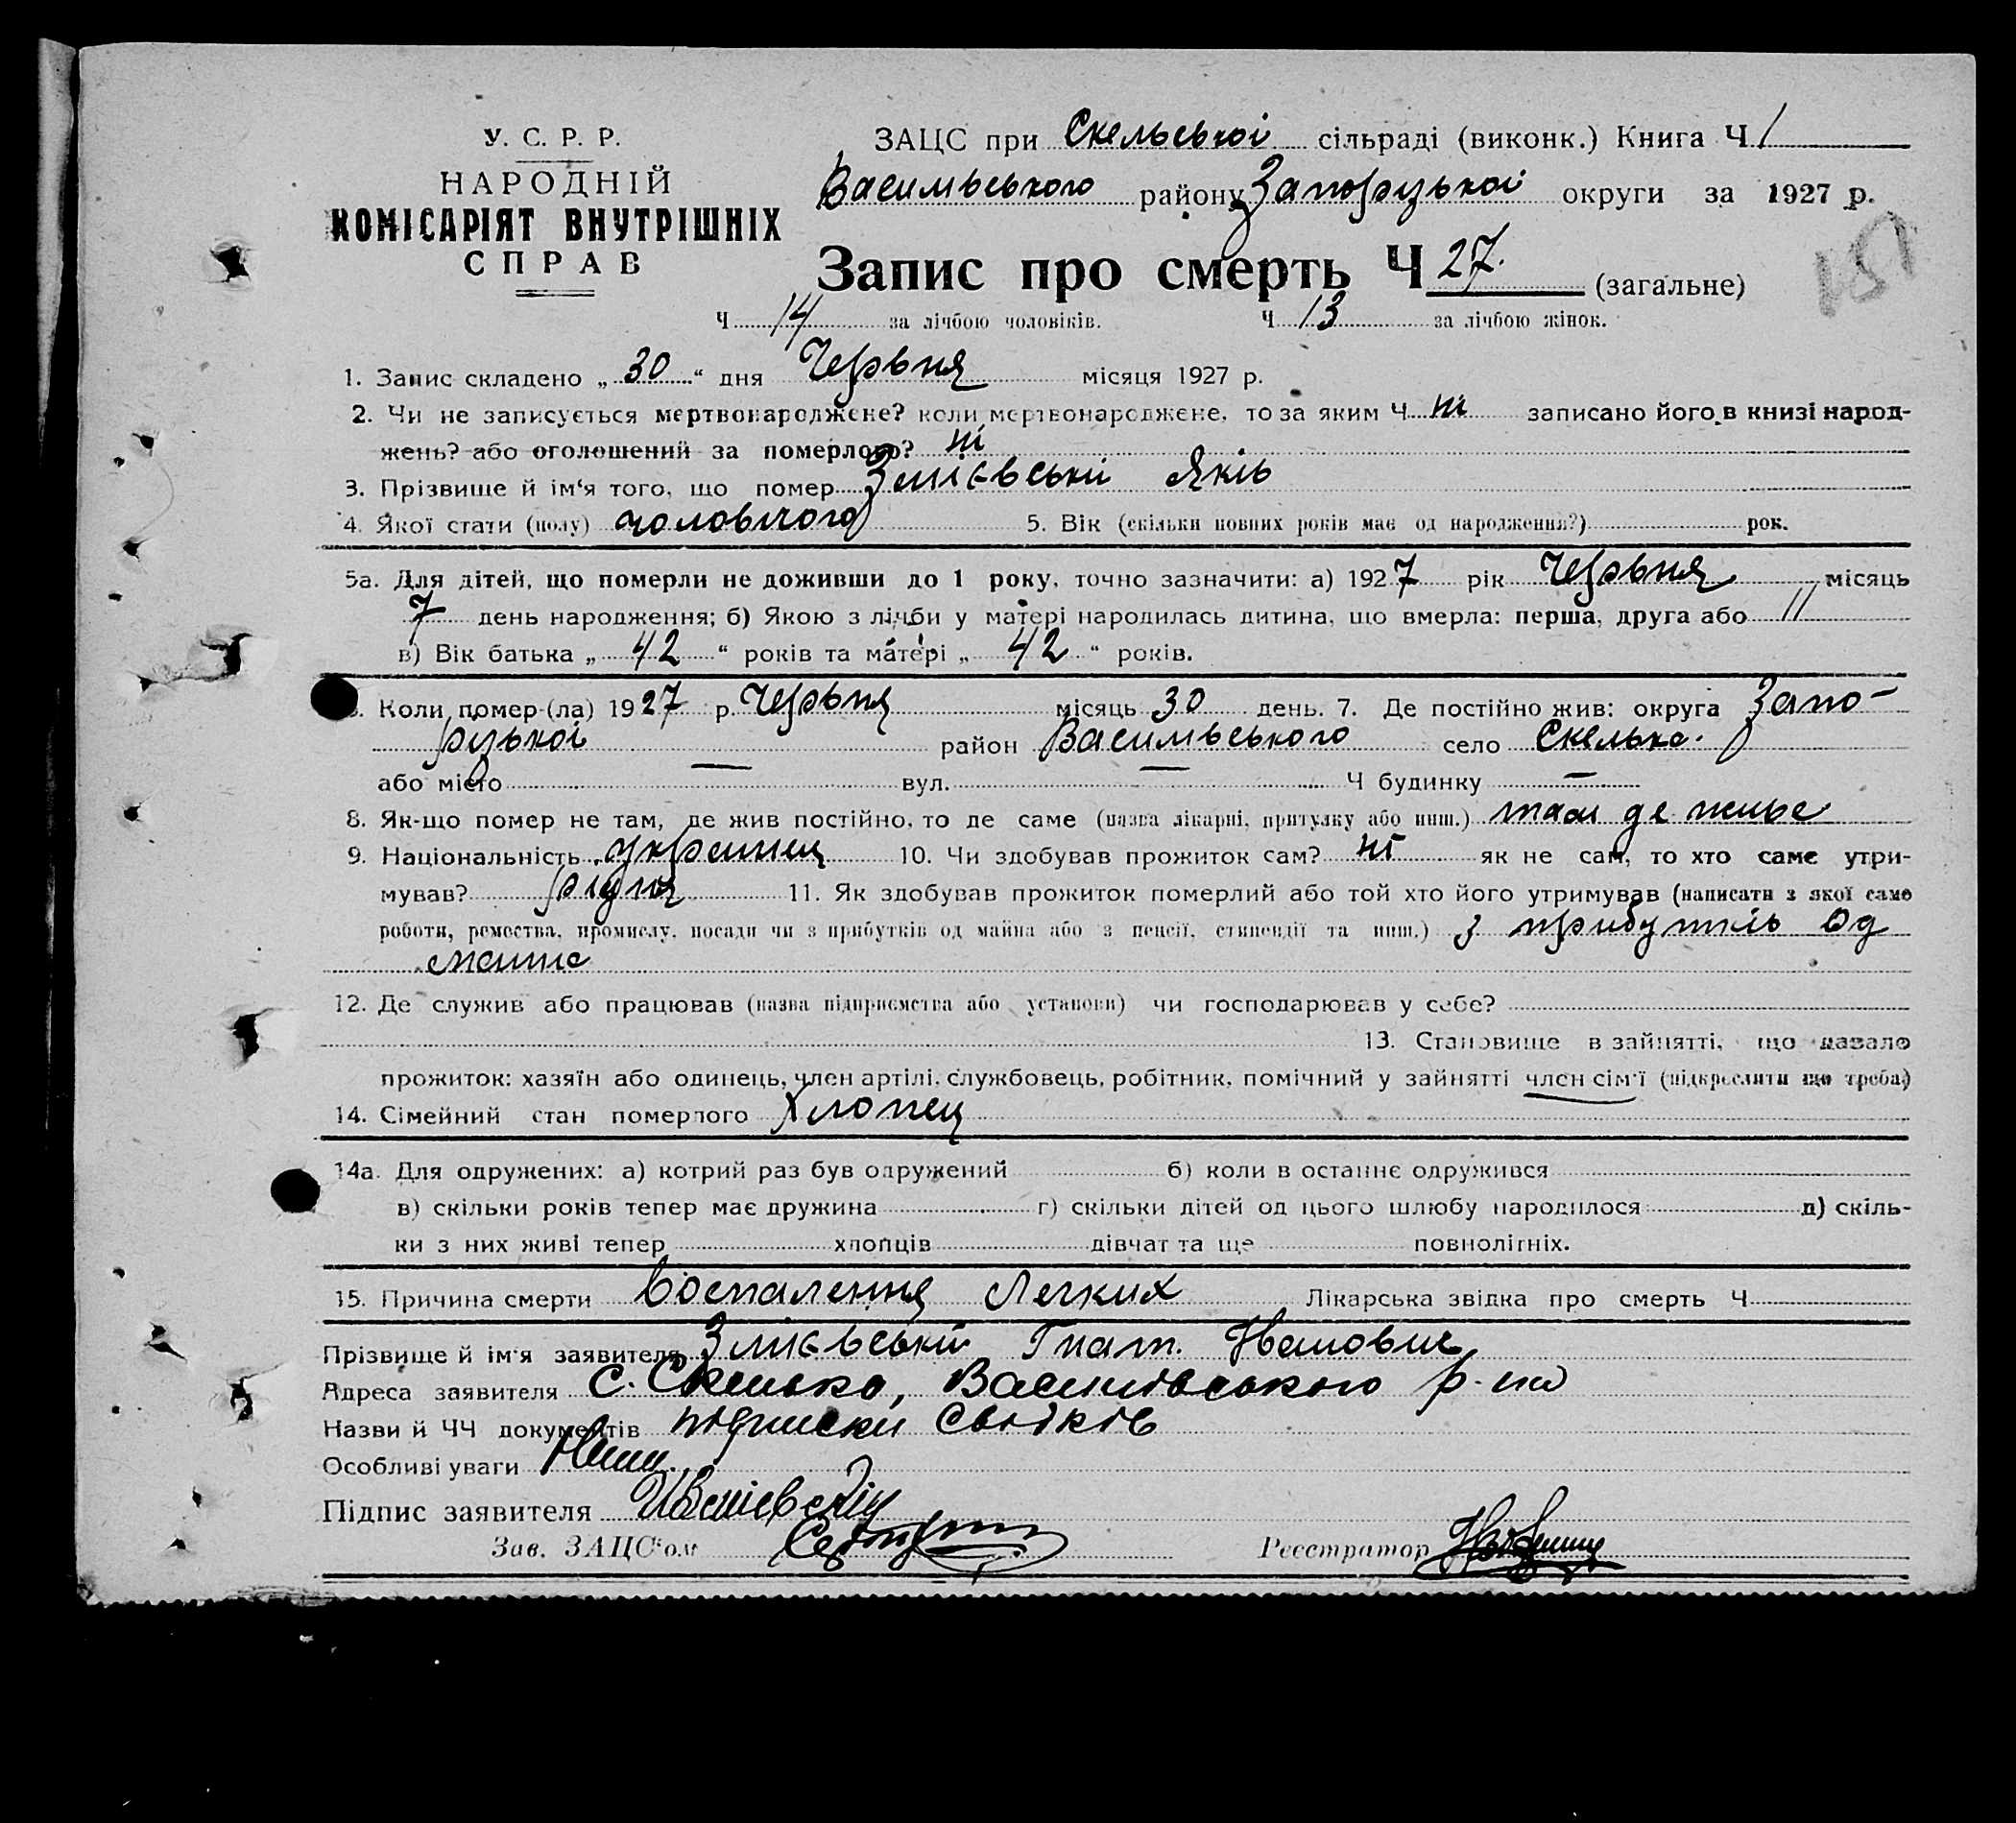 У. С. Р. Р.
НАРОДНІЙ
КОМІСАРІЯТ ВНУТРІШНІХ
СПРАВ
ЗАЦС при Скельської сільраді (виконк.) Книга Ч 1
Васильвського району Запорузької округи за 1927 р.
151
Запис про смерть Ч 27. (загальне)
Ч 14 за лічбою чоловіків. Ч 13 за лічбою жінок.
1. Запис складено „ 30 “ дня Червня місяця 1927 р.
2. Чи не записується мертвонароджене? коли мертвонароджене, то за яким Ч ні записано його в книзі народ-
жень? або оголошений за померлого? ні
3. Прізвище й ім‘я того, що помер Змієвський Яків
4. Якої стати (полу) чоловічого 5. Вік (скільки повних років має од народження?) рок.
5а. Для дітей, що померли не доживши до 1 року, точно зазначити: а) 1927 рік Червня місяць
7 день народження; б) Якою з лічби у матері народилась дитина, що вмерла: перша, друга або 11
в) Вік батька „ 42 “ років та матері „ 42 “ років.
Коли помер-(ла) 1927 р. Червня місяць 30 день. 7. Де постійно жив: округа Запо-
рузької район Васильвського село Скелька.
або місто — вул. — Ч будинку —
8. Як-що помер не там, де жив постійно, то де саме (назва лікарні, притулку або инш.) там де живе
9. Національність українец 10. Чи здобував прожиток сам? ні як не сам, то хто саме утри-
мував? рідня 11. Як здобував прожиток померлий або той хто його утримував (написати з якої саме
роботи, ремества, промислу, посади чи з прибутків од майна або з пенсії, стипендії та инш.) з прибутків од
маина
12. Де служив або працював (назва підприємства або установи) чи господарював у себе?
13. Становище в зайнятті, що давало
прожиток: хазяїн або одинець, член артілі, службовець, робітник, помічний у зайнятті член сім'ї (підкреслити що треба)
14. Сімейний стан померлого Хлопец
14а. Для одружених: а) котрий раз був одружений б) коли в останнє одружився
в) скільки років тепер має дружина г) скільки дітей од цього шлюбу народилося д) скіль-
ки з них живі тепер хлопців дівчат та ще повнолітніх.
15. Причина смерти Воспалення Легких Лікарська звідка про смерть Ч
Прізвище й ім‘я заявителя Змієвський Гнат. Иванович
Адреса заявителя с. Скелька, Василівського р-на
Назви й ЧЧ документів підписки свідків
Особливі уваги
Підпис заявителя
Зав. ЗАЦС‘ом Реєстратор